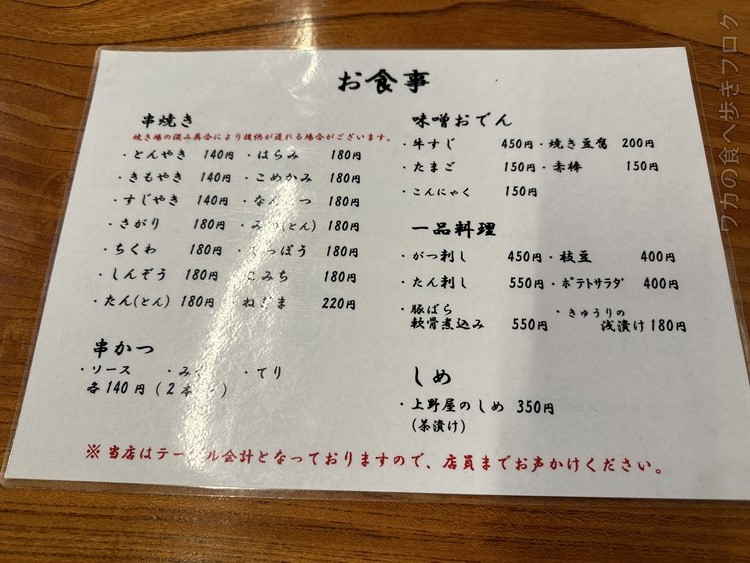 お食事
串焼き
焼き場の混み具合により提供が遅れる場合がございます。
・とんやき 140円 ・はらみ 180円
・きもやき 140円 ・こめかみ 180円
・すじやき 140円 ・なん つ 180円
・さがり 180円 ・み (とん) 180円
・ちくわ 180円 っぽう 180円
・しんぞう 180円 みち 180円
・たん(とん) 180円 ねぎま 220円
串かつ
・ソース ・み ・てり
各140円(2本 )
味噌おでん
・牛すじ 450円 ・焼き豆腐 200円
・たまご 150円 ・赤棒 150円
・こんにゃく 150円
一品料理
・がつ刺し 450円 ・枝豆 400円
・たん刺し 550円 ・ポテトサラダ 400円
・豚ばら ・きゅうりの
軟骨煮込み 550円 浅漬け 180円
しめ
・上野屋のしめ 350円
(茶漬け)
※当店はテーブル会計となっておりますので、店員までお声かけください。
ワカの食べ歩きブログ